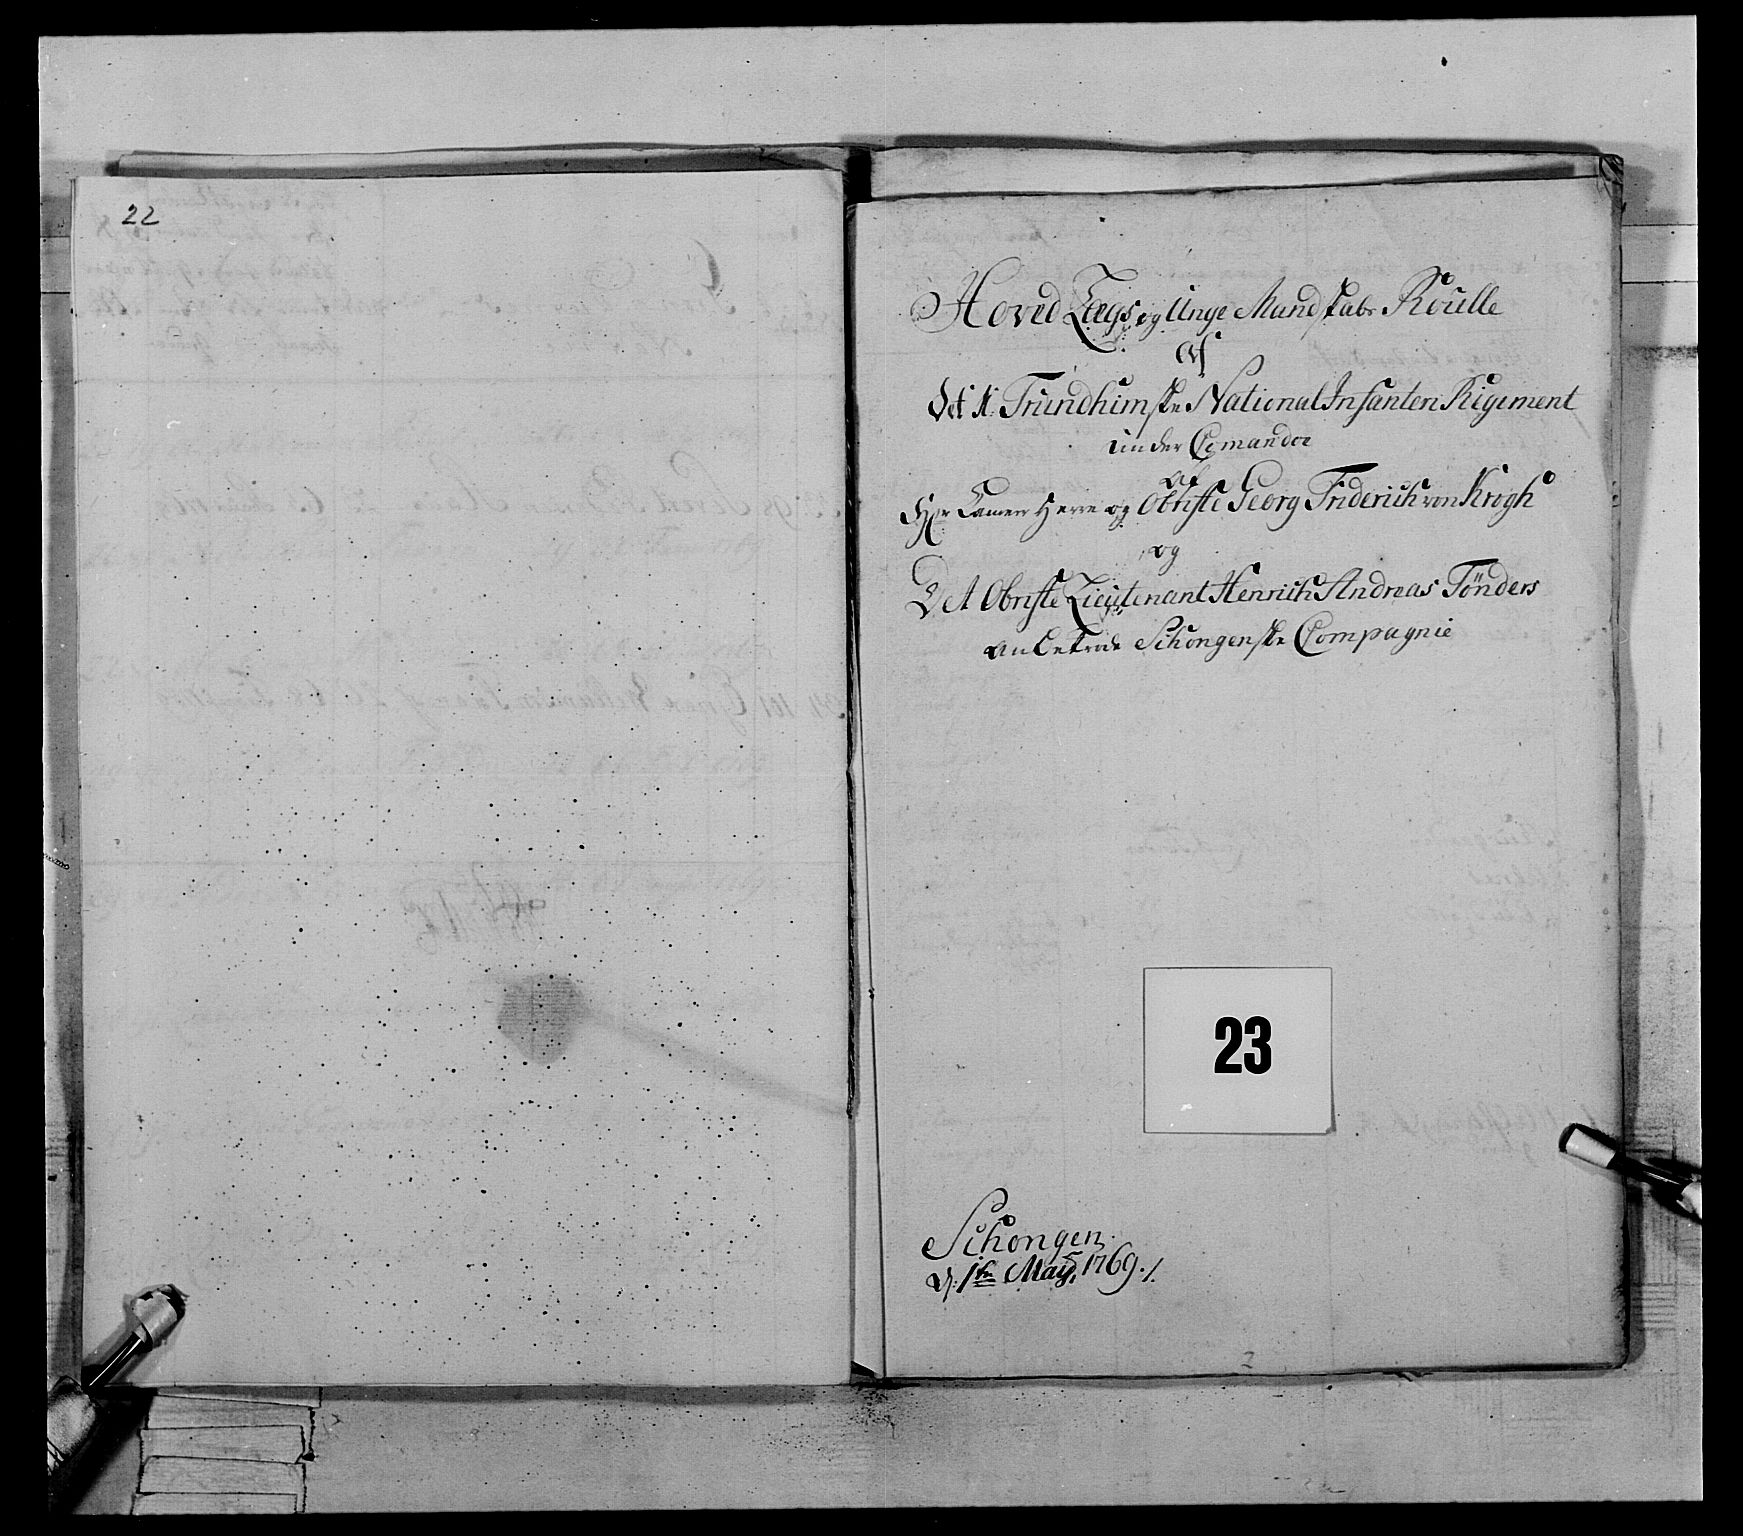 22
Hoved Lægs og Unge Mandskabs Roulle
Af
Det N: Trundhimske National Infanteri Regiment
under Comando
Af
Hr Camer Herre og Obriste Georg Friderich von Krogh
og
Det Obriste Lieutenant Henrich Andreas Tönders
anbetrode Schongenske Compagnie
23
Schongen
d: 1ste May 1769./.
2